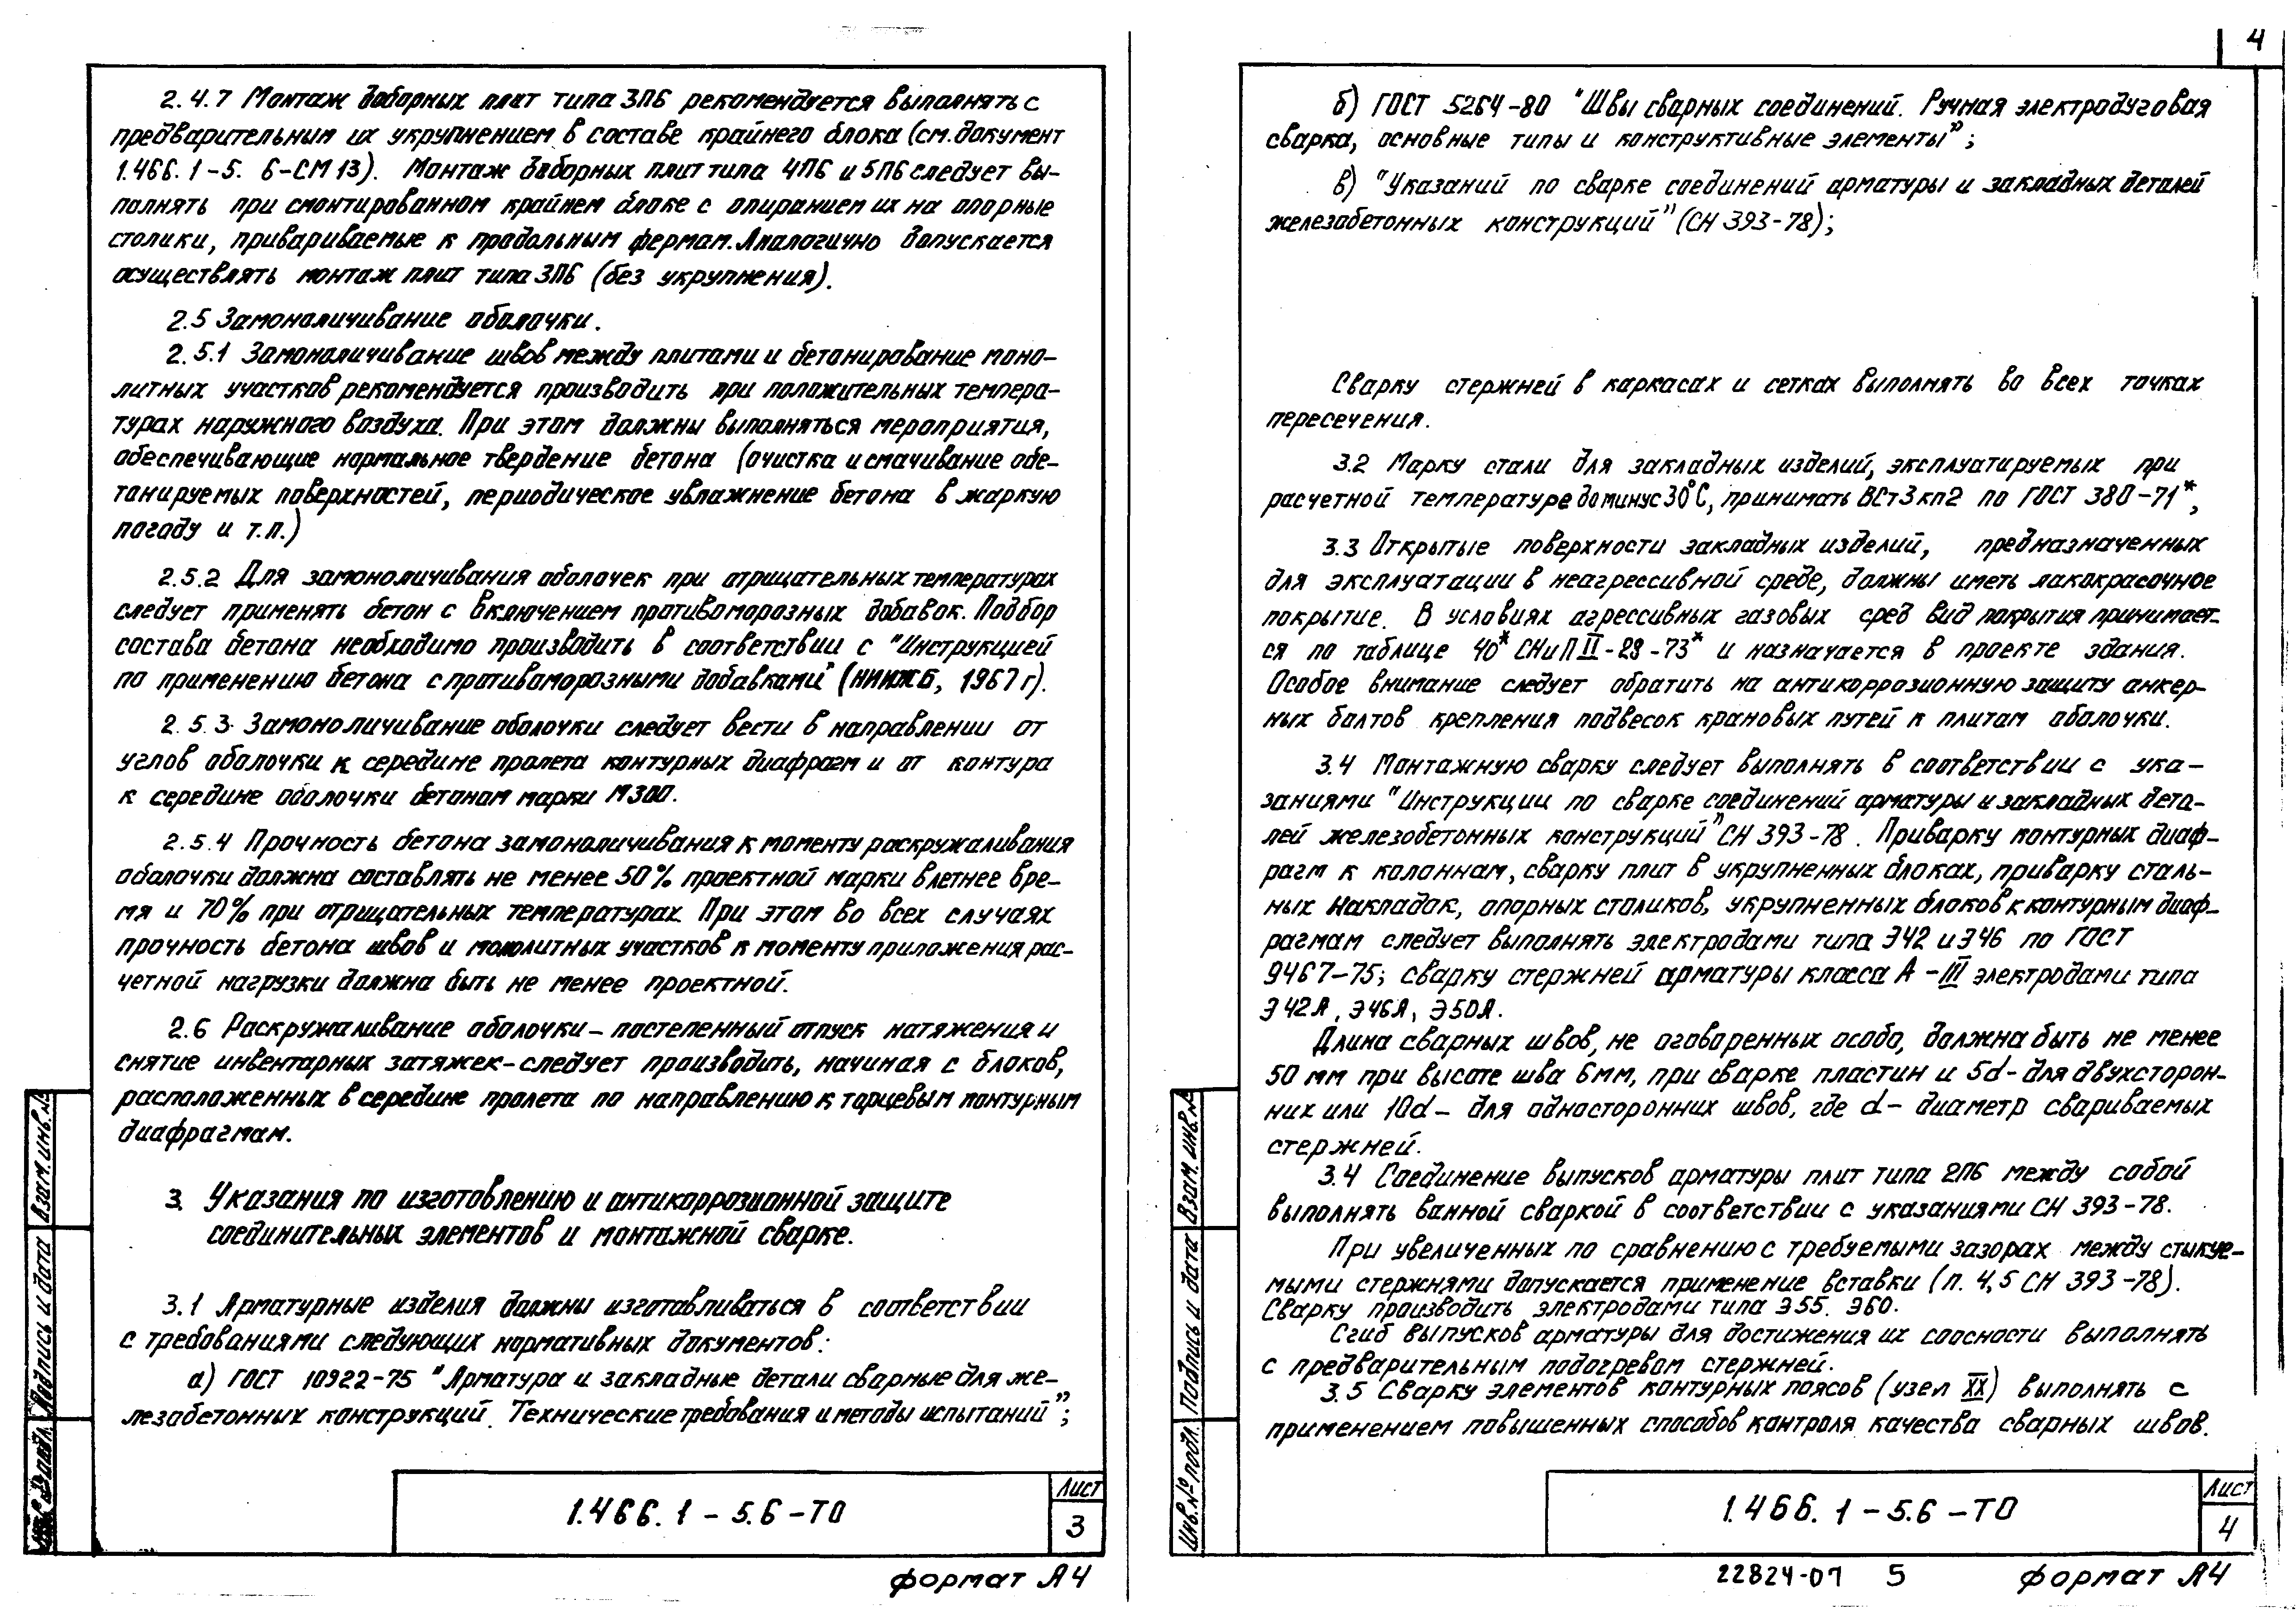 2.4.7 Монтаж доборных плит типа 3П6 рекомендуется выполнять с
предварительным их укрупнением в составе крайнего блока (см. документ
1.466.1-5. 6-СМ13). Монтаж доборных плит типа 4П6 и 5П6 следует вы-
полнять при смонтированном крайнем блоке с опиранием их на опорные
столики, привариваемые к продольным фермам. Аналогично допускается
осуществлять монтаж плит типа 3П6 (без укрупнения).
2.5 Замоноличивание оболочки.
2.5.1 Замоноличивание швов между плитами и бетонирование моно-
литных участков рекомендуется производить при положительных темпера-
турах наружного воздуха. При этом должны выполняться мероприятия,
обеспечивающие нормальное твердение бетона (очистка и смачивание обе-
тонируемых поверхностей, периодическое увлажнение бетона в жаркую
погоду и т.п.)
2.5.2 Для замоноличивания оболочек при отрицательных температурах
следует применять бетон с включением противоморозных добавок. Подбор
состава бетона необходимо производить в соответствии с "Инструкцией
по применению бетона с противоморозными добавками" (НИИЖБ, 1967 г).
2.5.3 Замоноличивание оболочки следует вести в направлении от
углов оболочки к середине пролета контурных диафрагм и от контура
к середине оболочки бетоном марки М300.
2.5.4 Прочность бетона замоноличивания к моменту раскружаливания
оболочки должна составлять не менее 50% проектной марки в летнее вре-
мя и 70% при отрицательных температурах. При этом во всех случаях
прочность бетона швов и монолитных участков к моменту приложения рас-
четной нагрузки должна быть не менее проектной.
2.6 Раскружаливание оболочки - постепенный отпуск натяжения и
снятие инвентарных затяжек - следует производить, начиная с блоков,
расположенных в середине пролета по направлению к торцевым контурным
диафрагмам.
3. Указания по изготовлению и антикоррозионной защите
соединительных элементов и монтажной сварке.
3.1 Арматурные изделия должны изготавливаться в соответствии
с требованиями следующих нормативных документов:
а) ГОСТ 10922-75 "Арматура и закладные детали сварные для же-
лезобетонных конструкций. Технические требования и методы испытаний";
Взам. инв.№
Подпись и дата
1.466.1-5.6-ТО
Лист
3
формат А4
4
б) ГОСТ 5264-80 "Швы сварных соединений. Ручная электродуговая
сварка, основные типы и конструктивные элементы";
в) "Указаний по сварке соединений арматуры и закладных деталей
железобетонных конструкций" (СН 393-78);
Сварку стержней в каркасах и сетках выполнять во всех точках
пересечения.
3.2 Марку стали для закладных изделий, эксплуатируемых при
расчетной температуре до минус 30°С, принимать ВСт3кп2 по ГОСТ 380-71*,
3.3 Открытые поверхности закладных изделий, предназначенных
для эксплуатации в неагрессивной среде, должны иметь лакокрасочное
покрытие. В условиях агрессивных газовых сред вид покрытия принимает-
ся по таблице 40* СНиП II-28-73* и назначается в проекте здания.
Особое внимание следует обратить на антикоррозионную защиту анкер-
ных болтов крепления подвесок крановых путей к плитам оболочки.
3.4 Монтажную сварку следует выполнять в соответствии с ука-
заниями "Инструкции по сварке соединений арматуры и закладных дета-
лей железобетонных конструкций" СН 393-78. Приварку контурных диаф-
рагм к колоннам, сварку плит в укрупненных блоках, приварку сталь-
ных накладок, опорных столиков, укрупненных блоков к контурным диаф-
рагмам следует выполнять электродами типа Э42 и Э46 по ГОСТ
9467-75; сварку стержней арматуры класса А-III электродами типа
Э42А, Э46А, Э50А.
Длина сварных швов, не оговоренных особо, должна быть не менее
50 мм при высоте шва 6мм, при сварке пластин и 5d - для двухсторон-
них или 10d - для односторонних швов, где d - диаметр свариваемых
стержней.
3.4 Соединение выпусков арматуры плит типа 2П6 между собой
выполнять ванной сваркой в соответствии с указаниями СН 393-78.
При увеличенных по сравнению с требуемыми зазорах между стыкуе-
мыми стержнями допускается применение вставки (п. 4,5 СН 393-78).
Сварку производить электродами типа Э55. Э60.
Сгиб выпусков арматуры для достижения их соосности выполнять
с предварительным подогревом стержней.
3.5 Сварку элементов контурных поясов (узел XX) выполнять с
применением повышенных способов контроля качества сварных швов.
Взам. инв.№
Подпись и дата
Инв.№ подл.
1.466.1-5.6-ТО
Лист
4
22824-07 5 формат А4